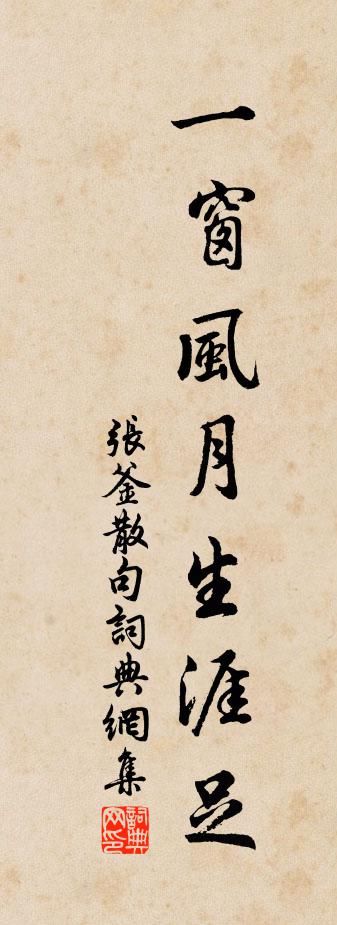 一窗風月生涯足
張釜散句詞典網集
詞典網印